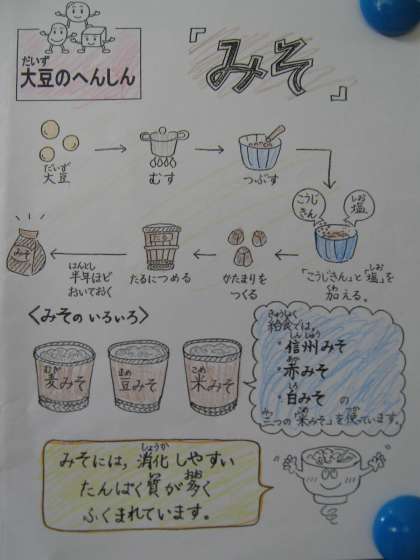 だいず
大豆のへんしん
『みそ』
だいず
大豆
むす
つぶす
こうじ
きん
しお
塩
「こうじきん」と「塩」を
しお
くわ
加える。
かたまりを
つくる
たるにつめる
はんとし
半年ほど
おいておく
みそ
〈みその いろいろ〉
むぎ
麦みそ
まめ
豆みそ
こめ
米みそ
きゅうしょく
給食では、
しんしゅう
・信州みそ
あか
・赤みそ
しろ
・白みそ の
みっ こめ つか
三つの「米みそ」を使っています。
しょうか
みそには,消化しやすい
しつ おお
たんぱく質が多く
ふくまれています。